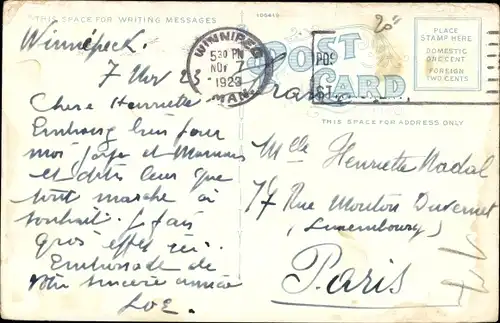 THIS SPACE FOR WRITING MESSAGES
WINNIPEG
5 30 PM
NOV 7
1923
MAN.
POST CARD
PLACE
STAMP HERE
DOMESTIC
ONE CENT
FOREIGN
TWO CENTS
THIS SPACE FOR ADDRESS ONLY
Winnipeck.
7 23
Chère Henriette
Embrasse bien pour
moi et Maman
et dites leur que
tout marche à
souhait. Je fais
gros effet ici.
Embrassade de
votre sincère amie
LOE.
France
Mlle Henriette Nadal
17 Rue Mouton Duvernet
(Luxembourg)
Paris